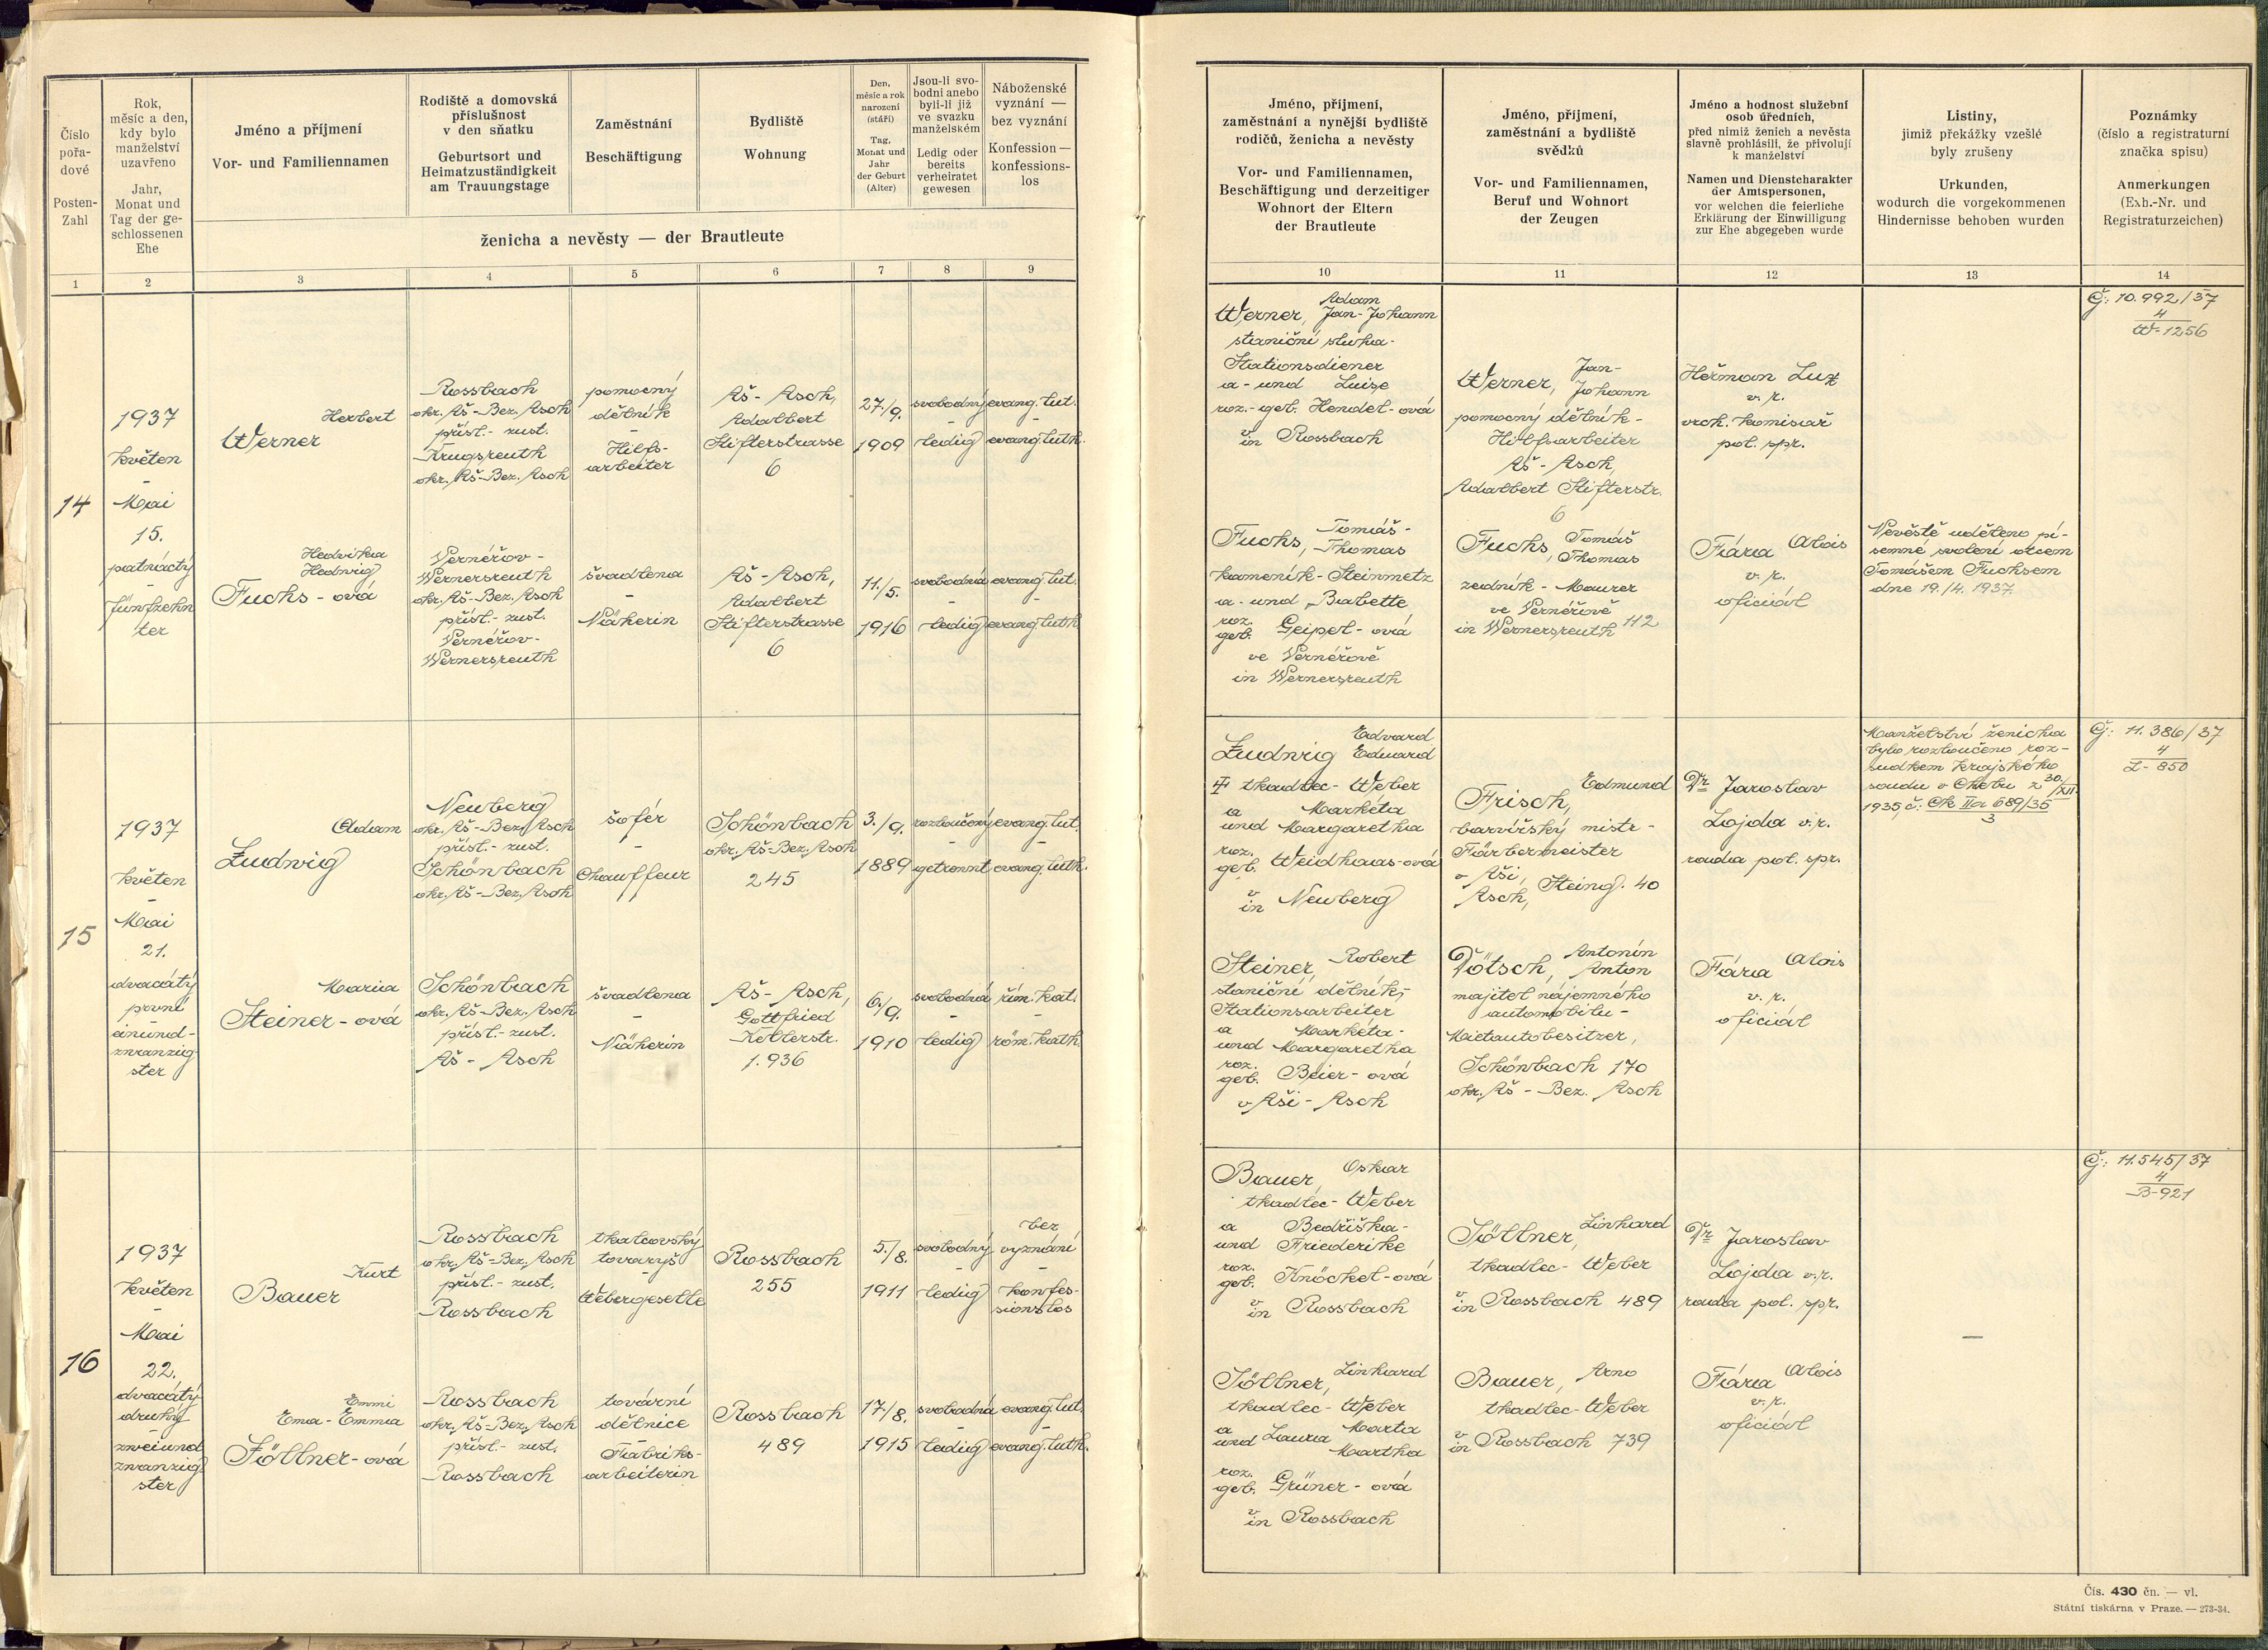 Číslo
pořa-
dové
Posten-
Zahl
Rok,
měsíc a den,
kdy bylo
manželství
uzavřeno
Jahr,
Monat und
Tag der ge-
schlossenen
Ehe
Jméno a příjmení
Vor- und Familiennamen
Rodiště a domovská
příslušnost
v den sňatku
Geburtsort und
Heimatzuständigkeit
am Trauungstage
Zaměstnání
Beschäftigung
Bydliště
Wohnung
Den,
měsíc a rok
narození
(stáří)
Tag,
Monat und
Jahr
der Geburt
(Alter)
Jsou-li svo-
bodni anebo
byli-li již
ve svazku
manželském
Ledig oder
bereits
verheiratet
gewesen
Náboženské
vyznání —
bez vyznání
Konfession —
konfessions-
los
ženicha a nevěsty — der Brautleute
1
2
3
4
5
6
7
8
9
Jméno, příjmení,
zaměstnání a nynější bydliště
rodičů, ženicha a nevěsty
Vor- und Familiennamen,
Beschäftigung und derzeitiger
Wohnort der Eltern
der Brautleute
Jméno, příjmení,
zaměstnání a bydliště
svědků
Vor- und Familiennamen,
Beruf und Wohnort
der Zeugen
Jméno a hodnost služební
osob úředních,
před nimiž ženich a nevěsta
slavně prohlásili, že přivolují
k manželství
Namen und Dienstcharakter
der Amtspersonen,
vor welchen die feierliche
Erklärung der Einwilligung
zur Ehe abgegeben wurde
Listiny,
jimiž překážky vzešlé
byly zrušeny
Urkunden,
wodurch die vorgekommenen
Hindernisse behoben wurden
Poznámky
(číslo a registraturní
značka spisu)
Anmerkungen
(Exh.-Nr. und
Registraturzeichen)
10
11
12
13
14
14
1937
květen
-
Mai
15.
patnáctý
-
fünfzehn
ter
Herbert
Werner
Rossbach
okr. Aš-Bez. Asch
přísl.- zust.
Krugsreuth
okr. Aš-Bez. Asch
pomocný
dělník
-
Hilfs-
arbeiter
Aš - Asch,
Adalbert
Stifterstrasse
6
27./9.
1909
svobodný
-
ledig
evang. lut.
-
evang. luth.
Hedvika
Hedwig
Fuchs - ová
Vernéřov -
Wernersreuth
okr. Aš-Bez. Asch
přísl.- zust.
Vernéřov-
Wernersreuth
švadlena
-
Näherin
Aš - Asch,
Adalbert
Stifterstrasse
6
11./5.
1916
svobodná
-
ledig
evang. lut.
-
evang. luth
Adam
Werner, Jan-Johann
staniční sluha-
Stationsdiener
a - und Luise
roz.- geb. Hendel - ová
v
in Rossbach
Jan-
Werner, Johann
pomocný dělník -
Hilfsarbeiter
Aš - Asch,
Adalbert Stifterstr.
6
Heřman Lux
v. r.
vrch. komisař
pol. spr.
Č: 10.992/37
4
W-1256
Fuchs, Tomáš-
Thomas
kameník - Steinmetz
a - und Babette
roz.
geb. Geipel - ová
ve Vernéřově
in Wernersreuth
Fuchs, Tomáš
Thomas
zedník - Maurer
ve Vernéřově
in Wernersreuth 112
Fára Alois
v. r.
oficiál
Nevěstě uděleno pí-
semné svolení otcem
Tomášem Fuchsem
dne 19./4. 1937
15
1937
květen
-
Mai
21.
dvacátý
první
einund-
zwanzig
ster
Adam
Ludwig
Neuberg
okr. Aš-Bez. Asch
přísl.- zust.
Schönbach
okr. Aš-Bez. Asch
šofér
-
Chauffeur
Schönbach
okr. Aš-Bez. Asch
245
3./9.
1889
rozloučený
-
getrennt
evang. lut.
-
evang. luth.
Maria
Steiner - ová
Schönbach
okr. Aš-Bez. Asch
přísl.- zust.
Aš - Asch
švadlena
-
Näherin
Aš - Asch,
Gottfried
Kellerstr.
1.936
6./9.
1910
svobodná
-
ledig
řím. kat.
-
röm. kath.
Edvard
Ludwig Eduard
tkadlec - Weber
a Markéta
und Margaretha
roz.
geb. Weidhaas-ová
v
in Neuberg
Edmund
Frisch,
barvířský mistr -
Färbermeister
v Aši,
Asch, Steing. 40
Dr Jaroslav
Lojda v. r.
rada pol. spr.
Manželství ženicha
bylo rozloučeno roz-
sudkem krajského
soudu v Chebu z 30./XII.
1935 č: Ck IIa 689/35
3
Č: 11.386/37
4
L - 850
Steiner, Robert
staniční dělník,
Stationsarbeiter
a Markéta -
und Margaretha
roz.
geb. Beier - ová
v Aši - Asch
Dötsch, Antonín
Anton
majitel nájemného
automobilu -
Mietautobesitzer,
Schönbach 170
okr. Aš - Bez. Asch
Fára Alois
v. r.
oficiál
16
1937
květen
-
Mai
22.
dvacátý
druhý
-
zweiund
zwanzig
ster
Kurt
Bauer
Rossbach
okr. Aš-Bez. Asch
přísl.- zust.
Rossbach
tkalcovský
tovaryš
-
Webergeselle
Rossbach
255
5./8.
1911
svobodný
-
ledig
bez
vyznání
-
konfes-
sionslos
Emmi
Ema - Emma
Föllner - ová
Rossbach
okr. Aš-Bez. Asch
přísl.- zust.
Rossbach
tovární
dělnice
-
Fabriks-
arbeiterin
Rossbach
489
17/8.
1915
svobodná
-
ledig
evang. lut.
-
evang. luth.
Bauer, Oskar
tkadlec - Weber
a Bedřiška -
und Friederike
roz.
geb. Knöckel - ová
v
in Rossbach
Föllner, Linhard
tkadlec - Weber
v
in Rossbach 489
Dr Jaroslav
Lojda v. r.
rada pol. spr.
—
Č: 11.545/37
4
B-921
Föllner, Linhard
tkadlec - Weber
a
und Laura Marta
Martha
roz.
geb. Grüner - ová
v
in Rossbach
Bauer, Arno
tkadlec - Weber
v
in Rossbach 739
Fára Alois
v. r.
oficiál
Čís. 430 čn. — vl.
Státní tiskárna v Praze. — 273-34.